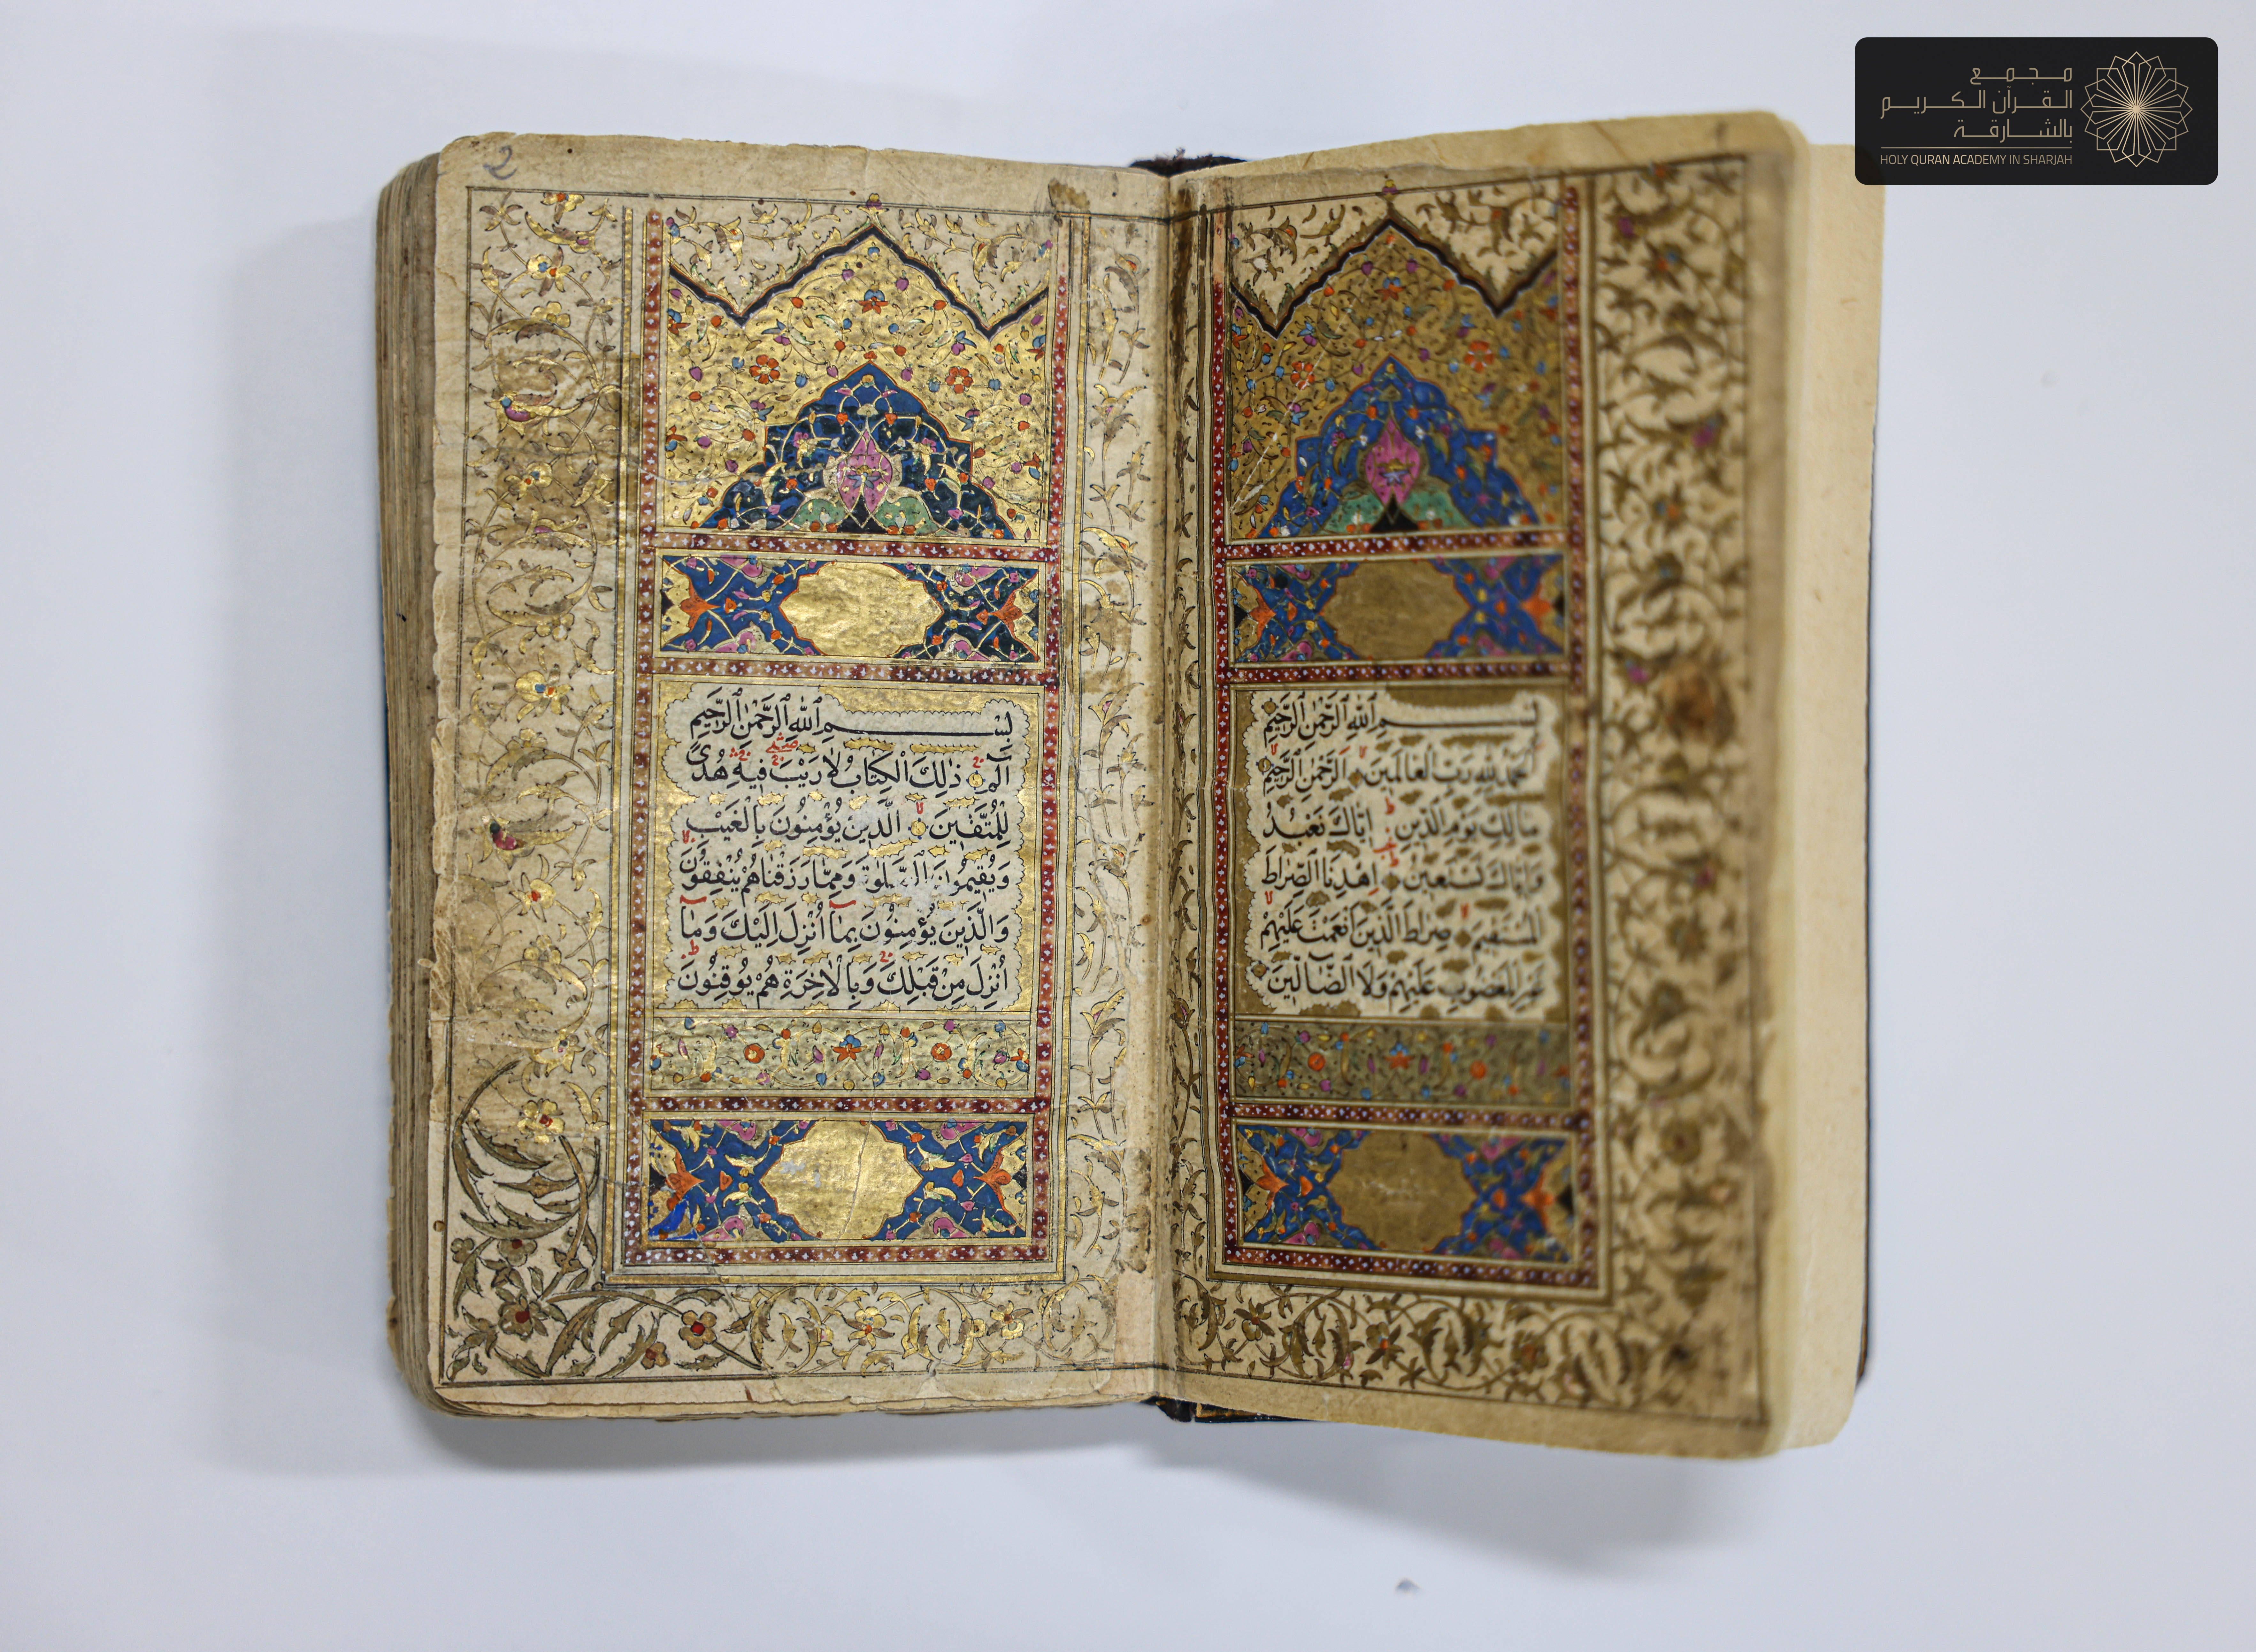 مجمع
القرآن الكريم
بالشارقة
HOLY QURAN ACADEMY IN SHARJAH
بِسْمِ ٱللّٰهِ ٱلرَّحْمٰنِ ٱلرَّحِيمِ
اَلْحَمْدُ لِلّٰهِ رَبِّ الْعَالَمِينَ اَلرَّحْمٰنِ الرَّحِيمِ
مَالِكِ يَوْمِ الدِّينِ اِيَّاكَ نَعْبُدُ
وَاِيَّاكَ نَسْتَعِينُ اِهْدِنَا الصِّرَاطَ
الْمُسْتَقِيمَ صِرَاطَ الَّذِينَ اَنْعَمْتَ عَلَيْهِمْ
غَيْرِ الْمَغْضُوبِ عَلَيْهِمْ وَلَا الضَّالِّينَ
2
بِسْمِ ٱللّٰهِ ٱلرَّحْمٰنِ ٱلرَّحِيمِ
الٓمٓ ذٰلِكَ الْكِتَابُ لَا رَيْبَ فِيهِ هُدًى
لِلْمُتَّقِينَ الَّذِينَ يُؤْمِنُونَ بِالْغَيْبِ
وَيُقِيمُونَ الصَّلٰوةَ وَمِمَّا رَزَقْنَاهُمْ يُنْفِقُونَ
وَالَّذِينَ يُؤْمِنُونَ بِمَٓا اُنْزِلَ اِلَيْكَ وَمَٓا
اُنْزِلَ مِنْ قَبْلِكَ وَبِالْاٰخِرَةِ هُمْ يُوقِنُونَ